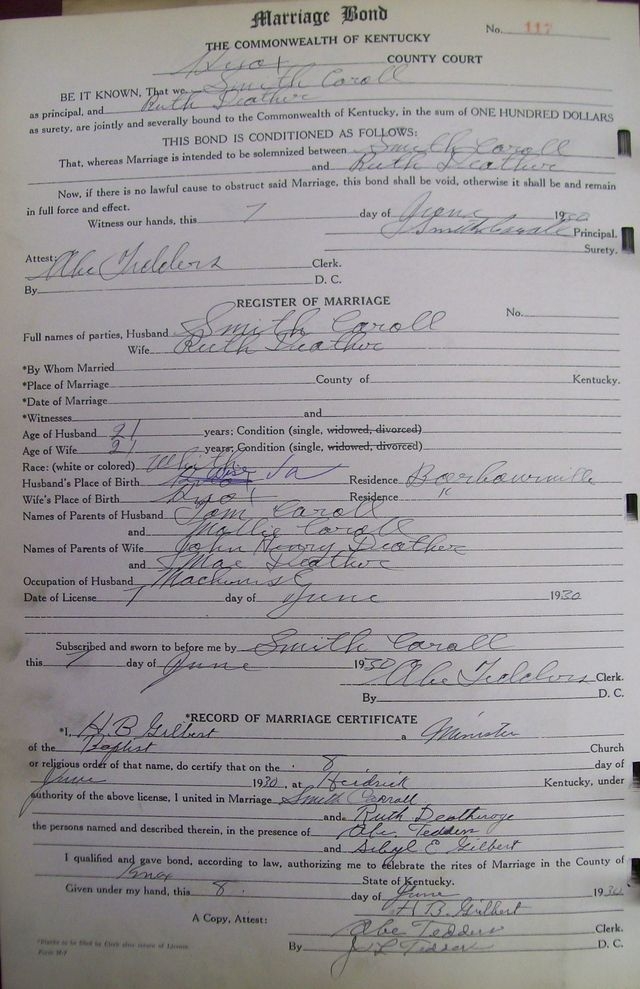 Marriage Bond
No. 117
THE COMMONWEALTH OF KENTUCKY
Knox COUNTY COURT
BE IT KNOWN, That we Smith Caroll
as principal, and Ruth Deather
as surety, are jointly and severally bound to the Commonwealth of Kentucky, in the sum of ONE HUNDRED DOLLARS
THIS BOND IS CONDITIONED AS FOLLOWS:
That, whereas Marriage is intended to be solemnized between Smith Caroll
and Ruth Deather
Now, if there is no lawful cause to obstruct said Marriage, this bond shall be void, otherwise it shall be and remain
in full force and effect.
Witness our hands, this 7 day of June 1930
Smith Caroll Principal.
Surety.
Attest: Abe Tedders Clerk.
By D. C.
REGISTER OF MARRIAGE
No.
Full names of parties, Husband Smith Caroll
Wife Ruth Deather
*By Whom Married
*Place of Marriage County of Kentucky.
*Date of Marriage
*Witnesses and
Age of Husband 21 years; Condition (single, widowed, divorced)
Age of Wife 21 years; Condition (single, widowed, divorced)
Race: (white or colored) White
Husband's Place of Birth Va Residence Boerbourville
Wife's Place of Birth Knox Residence "
Names of Parents of Husband Tom Caroll
and Mollie Caroll
Names of Parents of Wife John Henry Deather
and Mae Deather
Occupation of Husband Machinist
Date of License 7 day of June 1930
Subscribed and sworn to before me by Smith Caroll
this 7 day of June 1930 Abe Tedders Clerk.
By D. C.
*RECORD OF MARRIAGE CERTIFICATE
*I, H B Gilbert a Minister
of the Baptist Church
or religious order of that name, do certify that on the 8 day of
June 1930, at Heidrick Kentucky, under
authority of the above license, I united in Marriage Smith Carroll
and Ruth Deatheroge
the persons named and described therein, in the presence of Abe Tedders
and Sibyl E Gilbert
I qualified and gave bond, according to law, authorizing me to celebrate the rites of Marriage in the County of
Knox State of Kentucky.
Given under my hand, this 8 day of June 1930
H B. Gilbert
A Copy, Attest: Abe Tedders Clerk.
By J L Tedders D. C.
*Blanks to be filled by Clerk after return of License
Form M-7